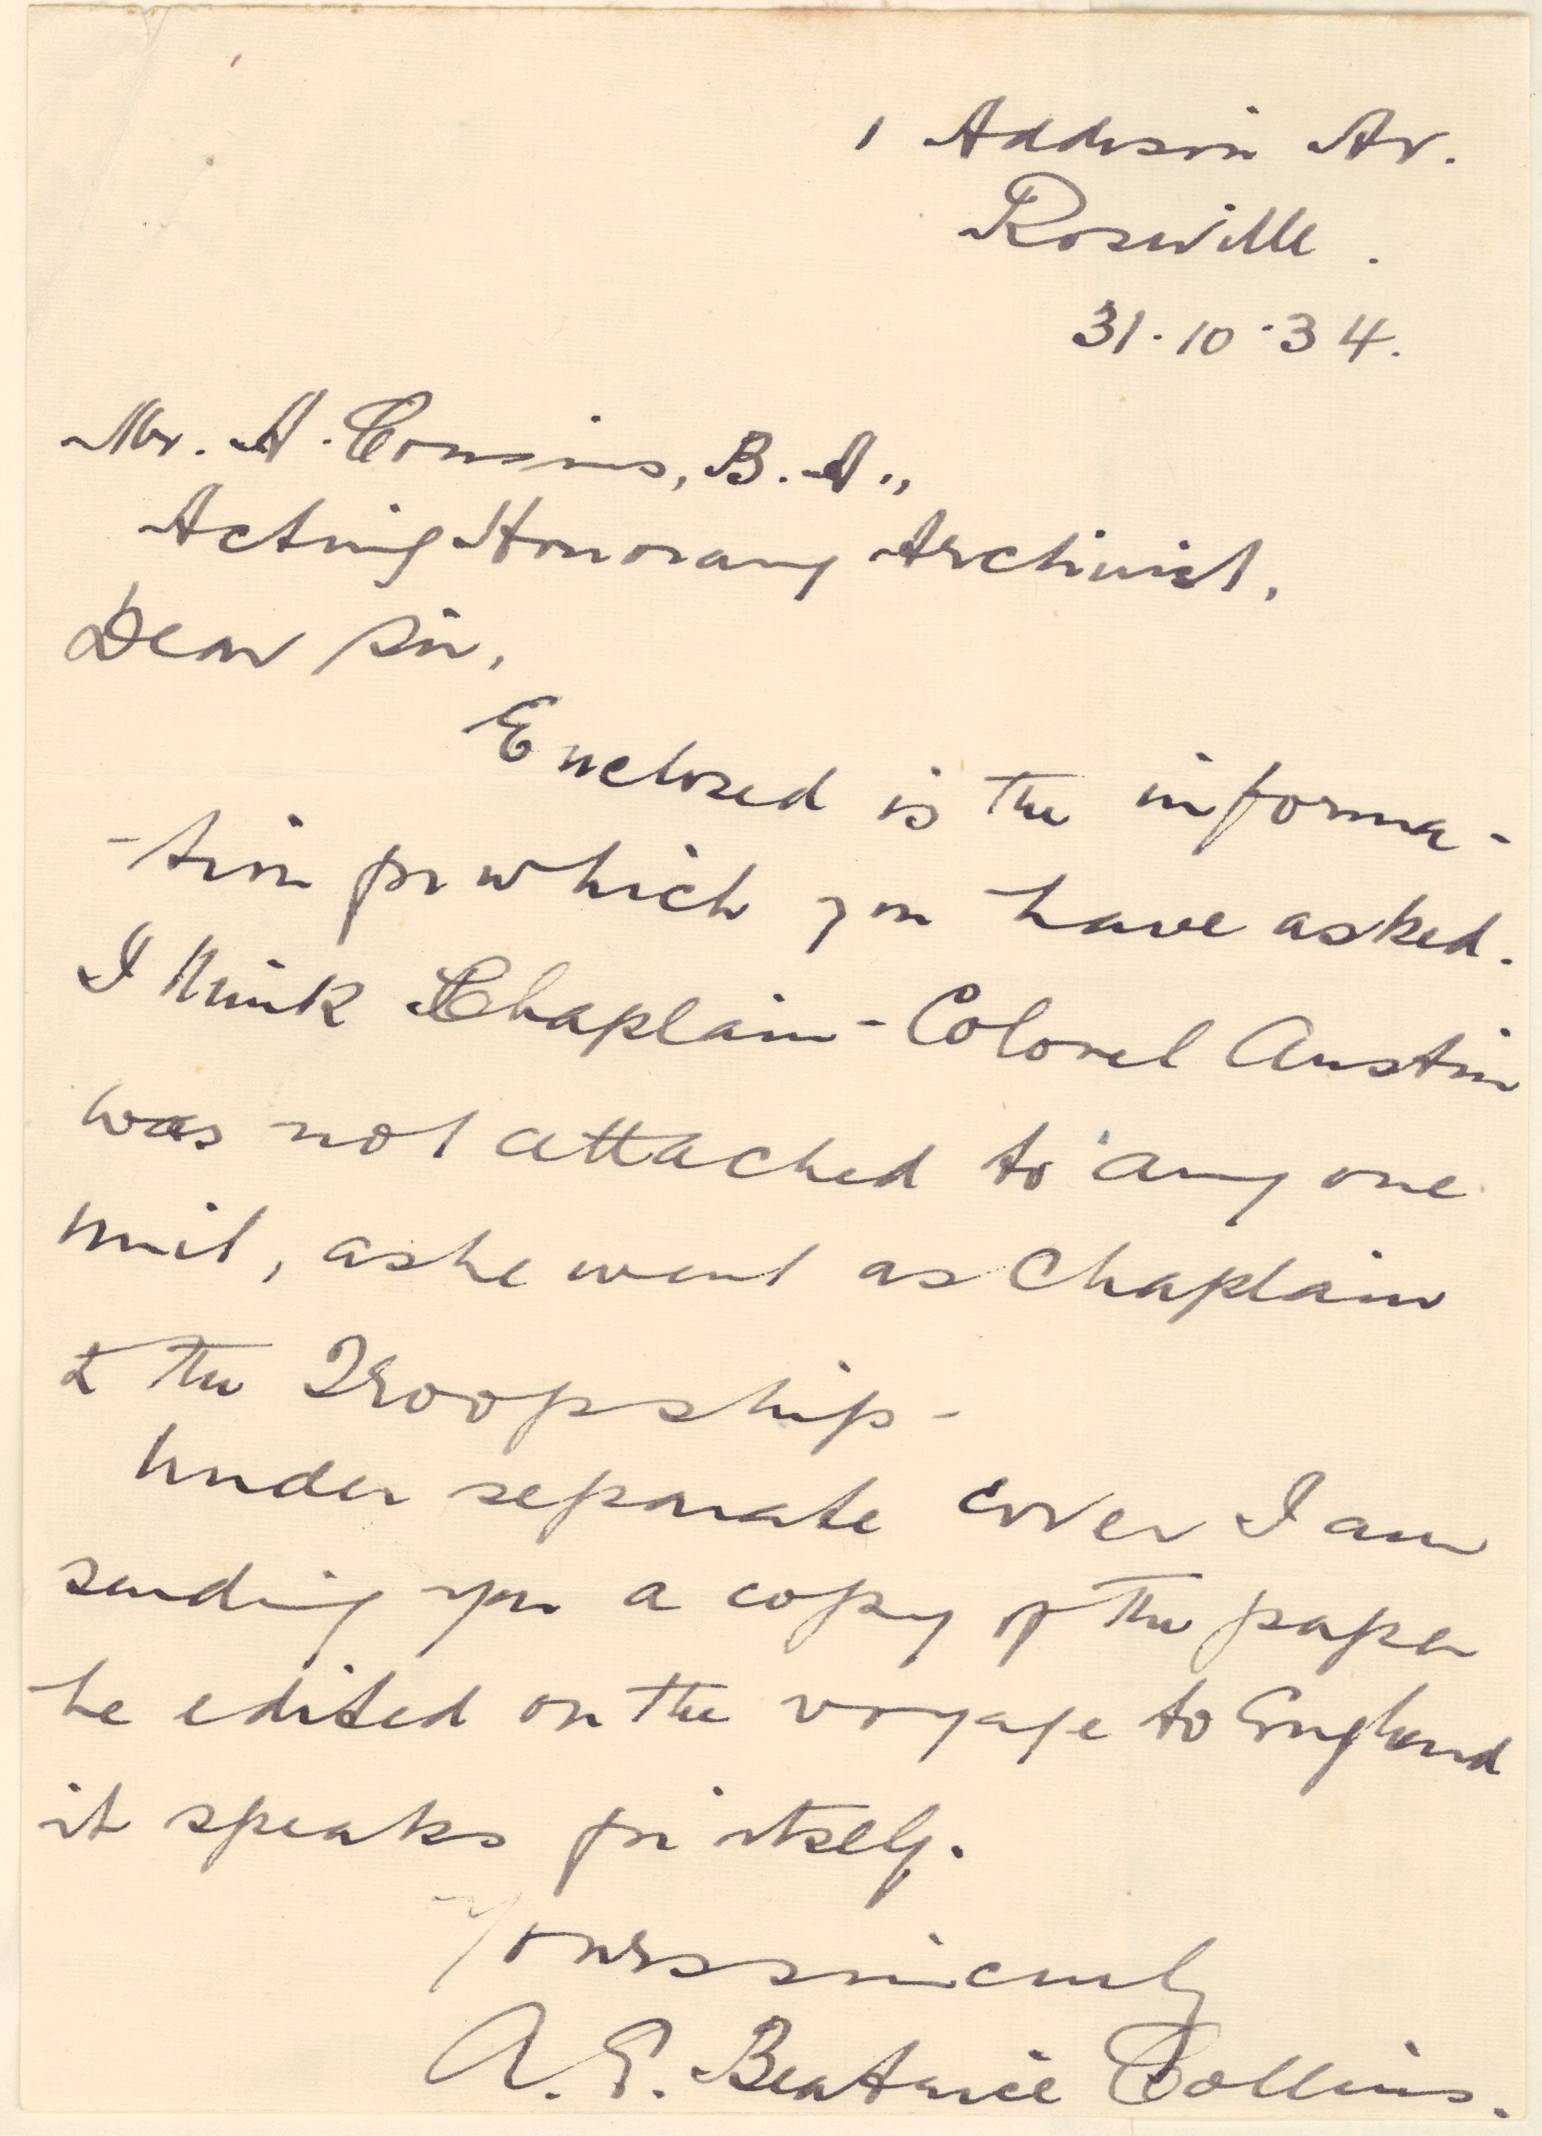 1 Addison Av.
Roseville.
31.10.34.
Mr. A. Cousins, B.A.,
Acting Honorary Archivist.
Dear Sir,
Enclosed is the informa-
-tion for which you have asked.
I think Chaplain-Colonel Austin
was not attached to any one
unit, as he went as Chaplain
to the Troopship-
Under separate cover I am
sending you a copy of the paper
he edited on the voyage to England
it speaks for itself.
Yours sincerely
A. E. Beatrice Collins.